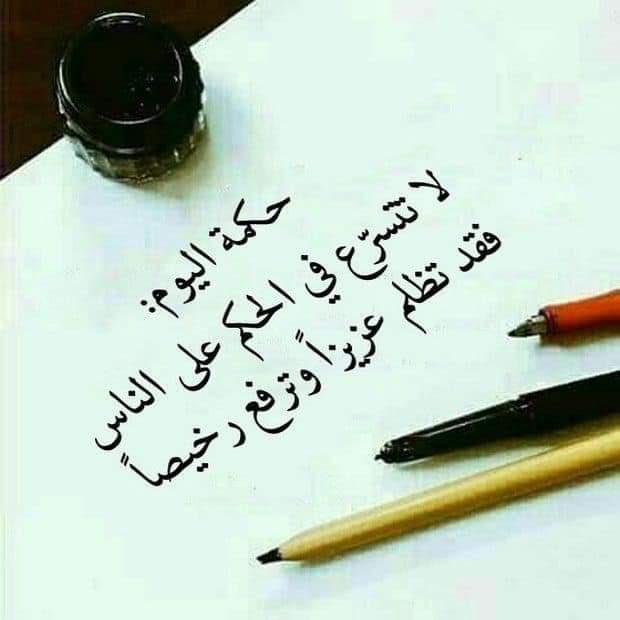 حكمة اليوم:
لا تتسرّع في الحكم على الناس
فقد تظلم عزيزاً وترفع رخيصاً